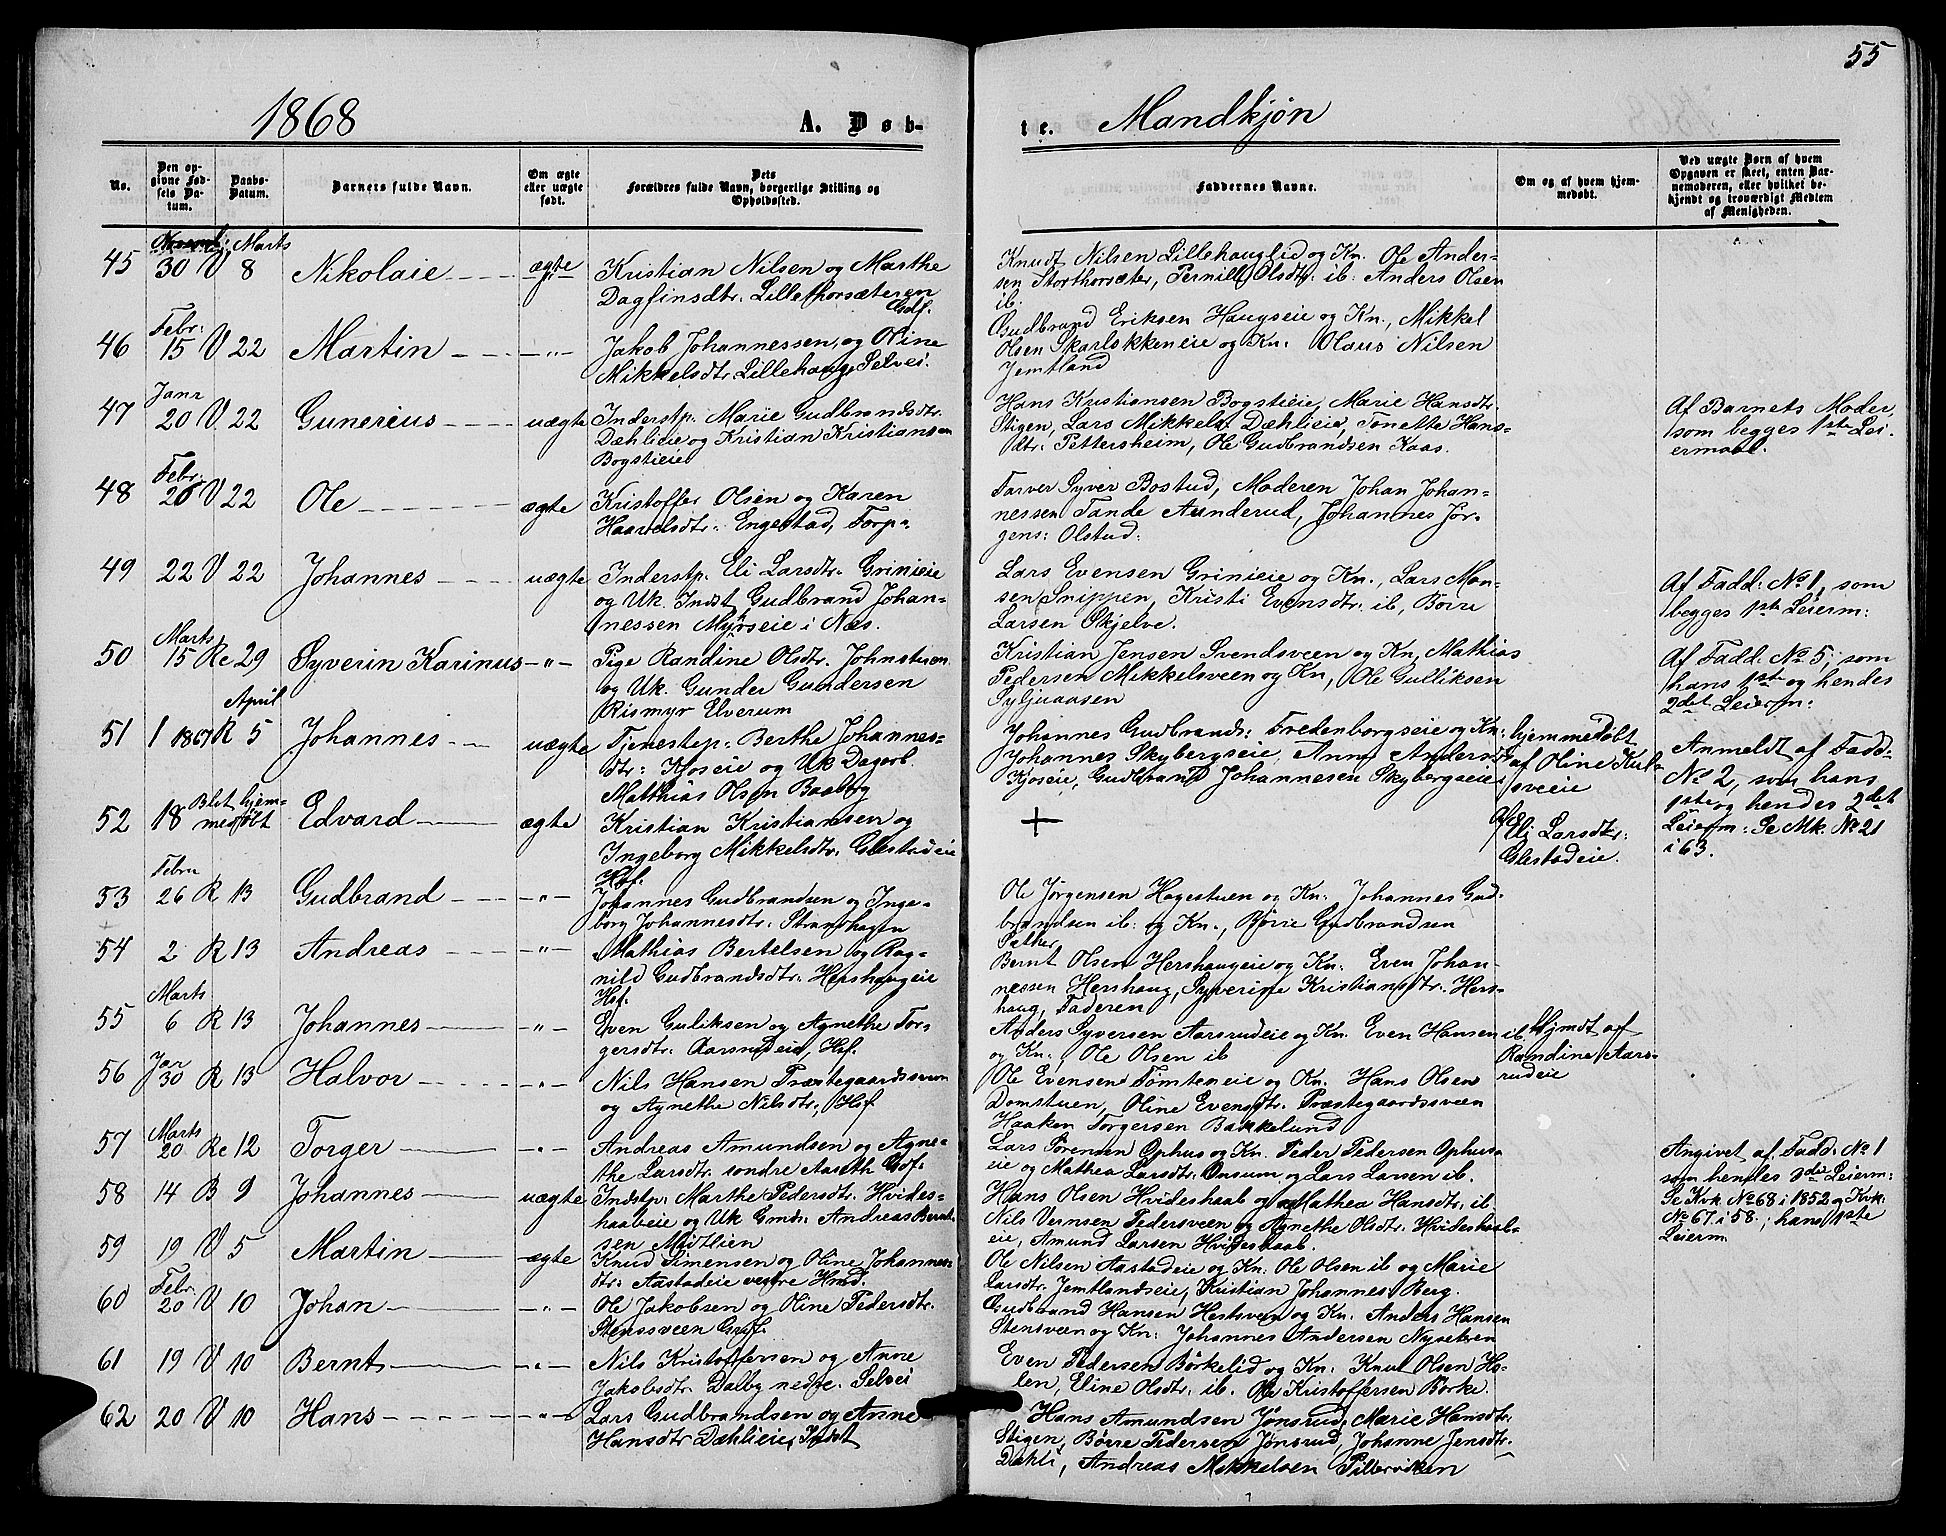 55
1868 A. Døb-
te. Mandkjøn
No.
Den op-
givne Fød-
sels Da-
tum.
Daabs-
Datum.
Barnets fulde Navn.
Om ægte
eller uægte
født.
Dets
Forældres fulde Navn, borgerlige Stilling og
Opholdssted.
Faddernes Navne.
Om og af hvem hjem-
medøbt.
Ved uægte Børn af hvem
Opgaven er skeet, enten Bar-
nemoderen, eller hvilket be-
kjendt og troværdigt Medlem
af Menigheden.
Marts
45 30 V 8 Nikolaie ægte Kristian Nilsen og Marthe
Dagfinsdtr. Lillethorsæteren
Knudt Nilsen Lillehauglid og Kn. Ole Ander-
sen Storthorsæter, Pernille Olsdtr. ib. Anders Olsen
ib.
Febr:
46 15 V 22 Martin -"- Jakob Johannessen, og Oline
Mikkelsdtr. Lillehaug Selvei.
Gudbrand Eriksen Haugseie og Kn., Mikkel
Olsen Skarløkkeneie og Kn: Olaus Nilsen
Jemtland
Janr
47 20 V 22 Gunerius uægte Inderstp: Marie Gudbrandsdtr.
Dæhlieie og Kristian Kristiansen
Bogstieie
Hans Kristiansen Bogstieie, Marie Hansdtr.
Stigen, Lars Mikkels: Dæhlieie, Tonette Hans-
dtr: Pettersheim, Ole Gudbrandsen Kaas.
Af Barnets Moder,
som begges 1ste Lei-
ermaal.
Febr:
48 26 V 22 Ole ægte Kristoffer Olsen og Karen
Haavelsdtr: Engestad, Torp-
Farver Syver Bostud, Moderen Johan Johan-
nessen Tande Aunderud, Johannes Jør-
gens: Olstud:
49 22 V 22 Johannes uægte Inderstp. Eli Larsdtr. Grinieie
og Uk. Indst Gudbrand Johan-
nessen Myrseie i Næs.
Lars Evensen Grinieie og Kn., Lars Mon-
sen Snippen, Kristi Evensdtr: ib, Børre
Larsen Skjelve.
Af Fadd: No 1, som
begges 1ste Leierm:
Marts
50 15 Re 29 Syverin Karinus -"- Pige Randine Olsdtr. Johnstuen
og Uk. Gunder Gundersen
Rismyr Elverum
Kristian Jensen Svendsveen og Kn, Mathias
Pedersen Mikkelsveen og Kn, Ole Gulliksen
Syljuaasen
Af Fadd: No 5, som
hans 1ste og hendes
2det Leierm:
April
51 1 1867 R 5 Johannes uægte Tjenestep: Berthe Johannes-
dtr: Kjoseie og Uk Dagarb.
Matthias Olsen Baaberg
Johannes Gudbrands: Fredenborgseie og Kn:
Johannes Skybergseie, Anne Andersdt
Kjoseie, Gudbrand Johannesen Skybergseie
hjemmedøbt
af Oline Kul-
sveeie
Anmeldt af Fadd-
No 2, som hans
1ste og hendes 2det
Leierm: Se Mk. No 21
i 63.
52 18 Blet hjem-
medøbt Edvard ægte Kristian Kristiansen og
Ingeborg Mikkelsdtr. Glestadeie
Hsf.
+
af Eli Larsdtr:
Glestadeie.
Febru
53 26 R 13 Gudbrand -"- Johannes Gudbrandsen og Inge-
borg Johannesdtr: Strandhagen
Ole Jørgensen Hagestuen og Kn. Johannes Gud-
brandsen ib: og Kn., Børre Gudbrandsen
Sæther
54 2 R 13 Andreas -"- Mathias Bertelsen og Rag-
nild Gudbrandsdtr: Hershaugeie
Hsf.
Bernt Olsen Hershaugeie og Kn: Even Johan-
nessen Hershaug, Syverine Kristiansdtr. Hers-
haug, Faderen
Marts
55 6 R 13 Johannes -"- Even Guliksen og Agnethe Tor-
gersdtr: Aarsrudeie, Hsf.
Anders Syversen Aarsrudeie og Kn. Even Hansen ib.
og Kn: Ole Olsen ib
Hjmdt af
Randine Aars-
rudeie
Jar
56 30 R 13 Halvor -"- Nils Hansen Præstegaardssveen
og Agnethe Nilsdtr. Hsf
Ole Evensen Tømteneie og Kn. Hans Olsen
Domstuen, Oline Evensdtr. Præstegaardssveen
Haaken Torgersen Bakkelund
Marts
57 20 Re 12 Torger -"- Andreas Amundsen og Agne-
the Larsdtr. søndre Aaseth Gdf.
Lars Sørensen Ophus og Kn. Peder Pedersen Ophus-
eie og Mathea Larsdtr. Onsum og Lars Larsen ib.
58 14 B 9 Johannes uægte Indstp: Marthe Pedersdtr. Hvides-
haabeie og Uk Gmds: Andreas Bernt-
sen Midtlien
Hans Olsen Hvideshaab og Mathea Hansdtr. ib.
Nils Vernsen Pedersveen og Agnethe Olsdtr. Hvideshaab-
eie, Amund Larsen Hvideshaab.
Angivet af Fadd: No 1
som hendes 3die Leierm:
Se Kvk No 68 i 1852 og Kvk:
No 67. i 58.; hans 1ste
Leierm
59 19 V 5 Martin ægte Knud Simensen og Oline Johannes-
dtr: Aastadeie vestre Hmd.
Ole Nilsen Aastadeie og Kn. Ole Olsen ib og Marie
Larsdtr. Jemtlandseie, Kristian Johannes Berg.
Febr.
60 20 V 10 Johan -"- Ole Jakobsen og Oline Pedersdtr.
Stensveen
Gudbrand Hansen Hestsveen og Kn. Anders Hansen
Stensveen og Kn: Johannes Andersen Nysetven
61 19 V 10 Bernt -"- Nils Kristoffersen og Anne
Jakobsdtr. Dalby nedre. Selvei
Even Pedersen Børkelid og Kn: Knut Olsen Ho-
len, Eline Olsdtr: ib. Ole Kristoffersen Borke.
62 20 V 10 Hans -"- Lars Gudbrandsen og Anne
Hansdtr Dæhlieie, Indst
Hans Amundsen Jønsrud, Marie Hansdtr:
Stigen, Børre Pedersen Jønsrud, Johanne Jensdtr.
Dæhli, Andreas Mikkelsen Pillerviken